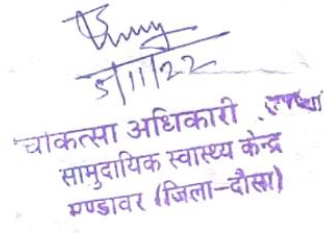 5/11/22
चिकित्सा अधिकारी
सामुदायिक स्वास्थ्य केन्द्र
मण्डावर (जिला-दौसा)